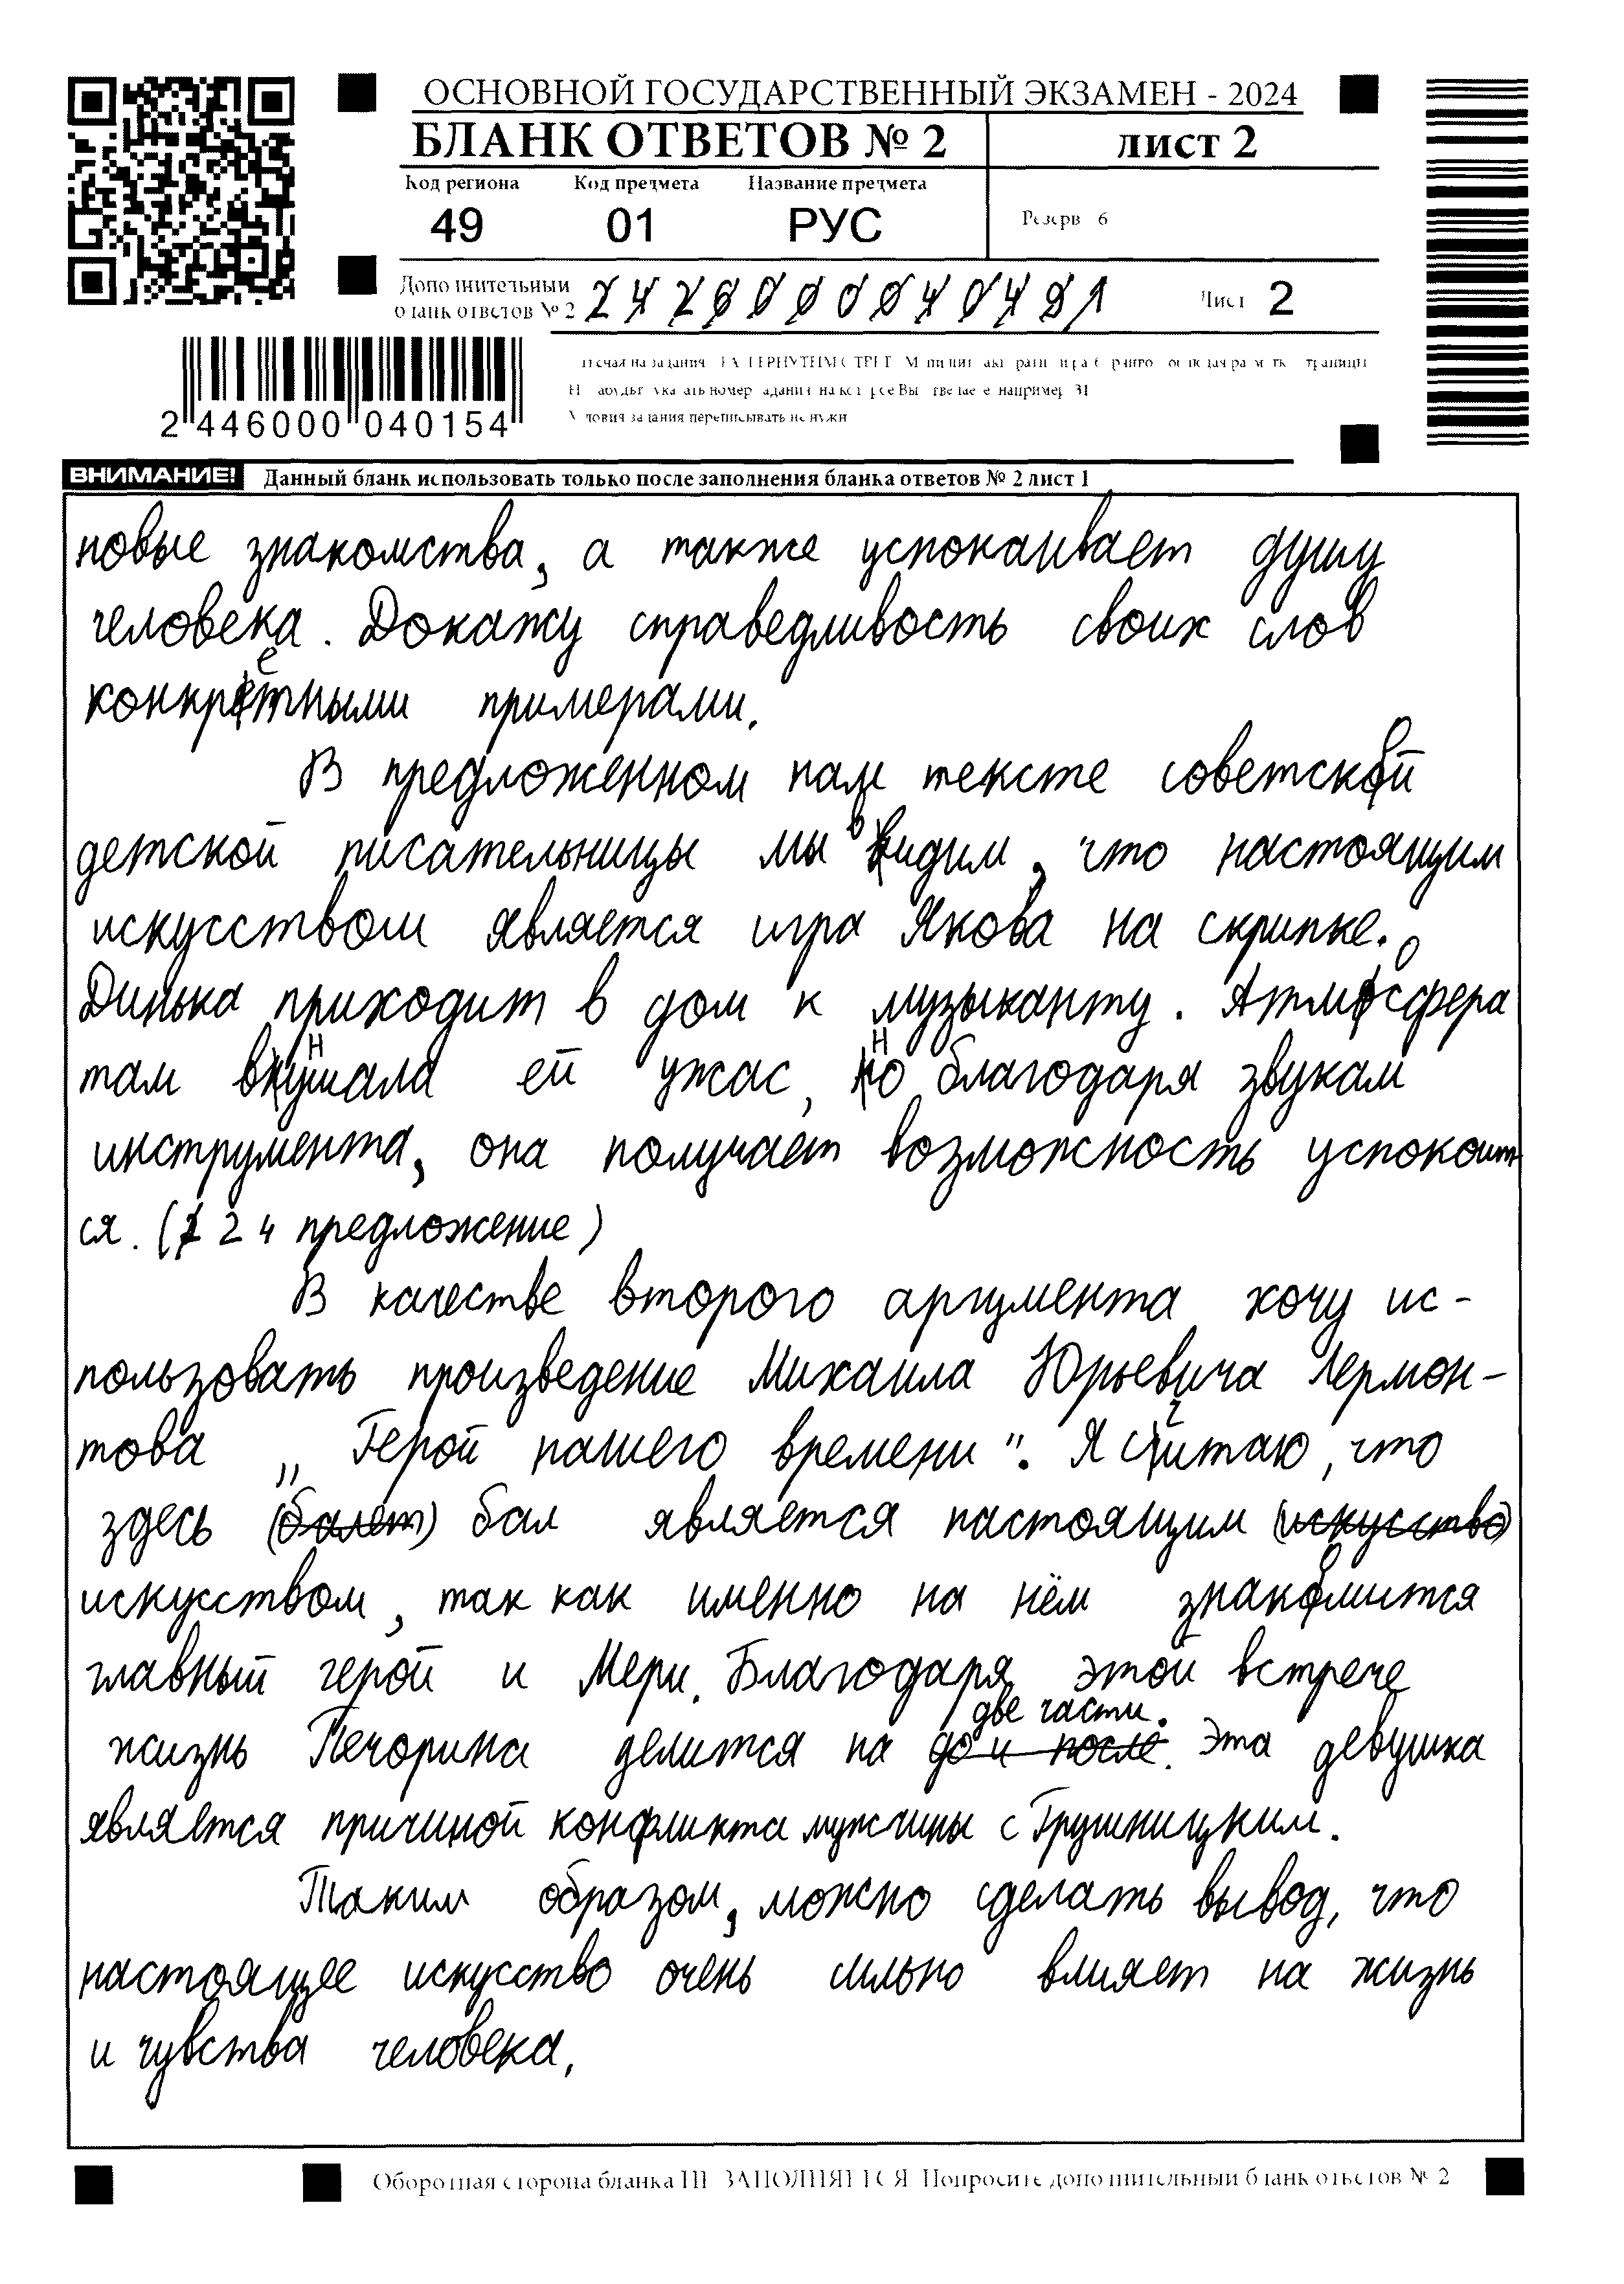 ОСНОВНОЙ ГОСУДАРСТВЕННЫЙ ЭКЗАМЕН - 2024
БЛАНК ОТВЕТОВ № 2
лист 2
Код региона Код предмета Название предмета
49 01 РУС
Резерв 6
Дополнительный
бланк ответов № 2
Лист 2
2 446000 040154
ВНИМАНИЕ! Данный бланк использовать только после заполнения бланка ответов № 2 лист 1
новые знакомства, а также успокаивает душу
человека. Докажу справедливость своих слов
конкретными примерами.
В предложенном нам тексте советской
детской писательницы мы видим, что настоящим
искусством является игра Якова на скрипке.
Динька приходит в дом к музыканту. Атмосфера
там внушала ей ужас, но благодаря звукам
инструмента, она получает возможность успокоит
ся. (24 предложение)
В качестве второго аргумента хочу ис-
пользовать произведение Михаила Юрьевича Лермон-
това „Герой нашего времени". Я считаю, что
здесь (балет) бал является настоящим (искусство)
искусством, так как именно на нём знакомится
главный герой и Мери. Благодаря этой встрече
две части.
жизнь Печорина делится на до и после. Эта девушка
является причиной конфликта мужчины с Грушницким.
Таким образом, можно сделать вывод, что
настоящее искусство очень сильно влияет на жизнь
и чувства человека,
Оборотная сторона бланка НЕ ЗАПОЛНЯЕТСЯ Попросите дополнительный бланк ответов № 2